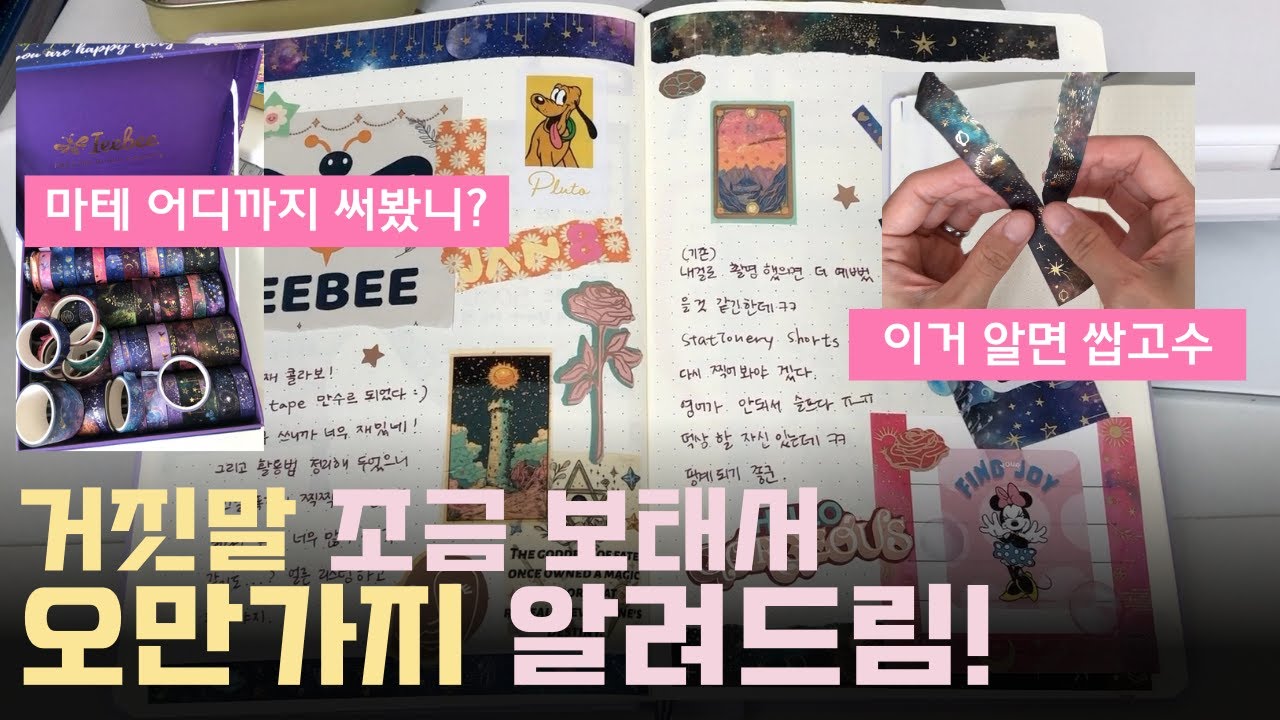 you are happy every
Teebee
마테 어디까지 써봤니?
Pluto
JAN 8
EEBEE
(기존)
내걸로 촬영 했으면 더 예뻤
을 것 같긴한데 ㅋㅋ
Stationery shorts
다시 찍어봐야 겠다.
영어가 안되서 슬프다 ㅠㅠ
떡상 할 자신 있는데 ㅋㅋ
이거 알면 쌉고수
재 콜라보!
tape 만수르 되었다 :)
쓰니까 너무 재밌네!
그리고 활용법 정리해 두었으니
FIND JOY
HELLO
GORGEOUS
THE GODDESS OF FATE
ONCE OWNED A MAGIC
거짓말 조금 보태서
오만가지 알려드림!